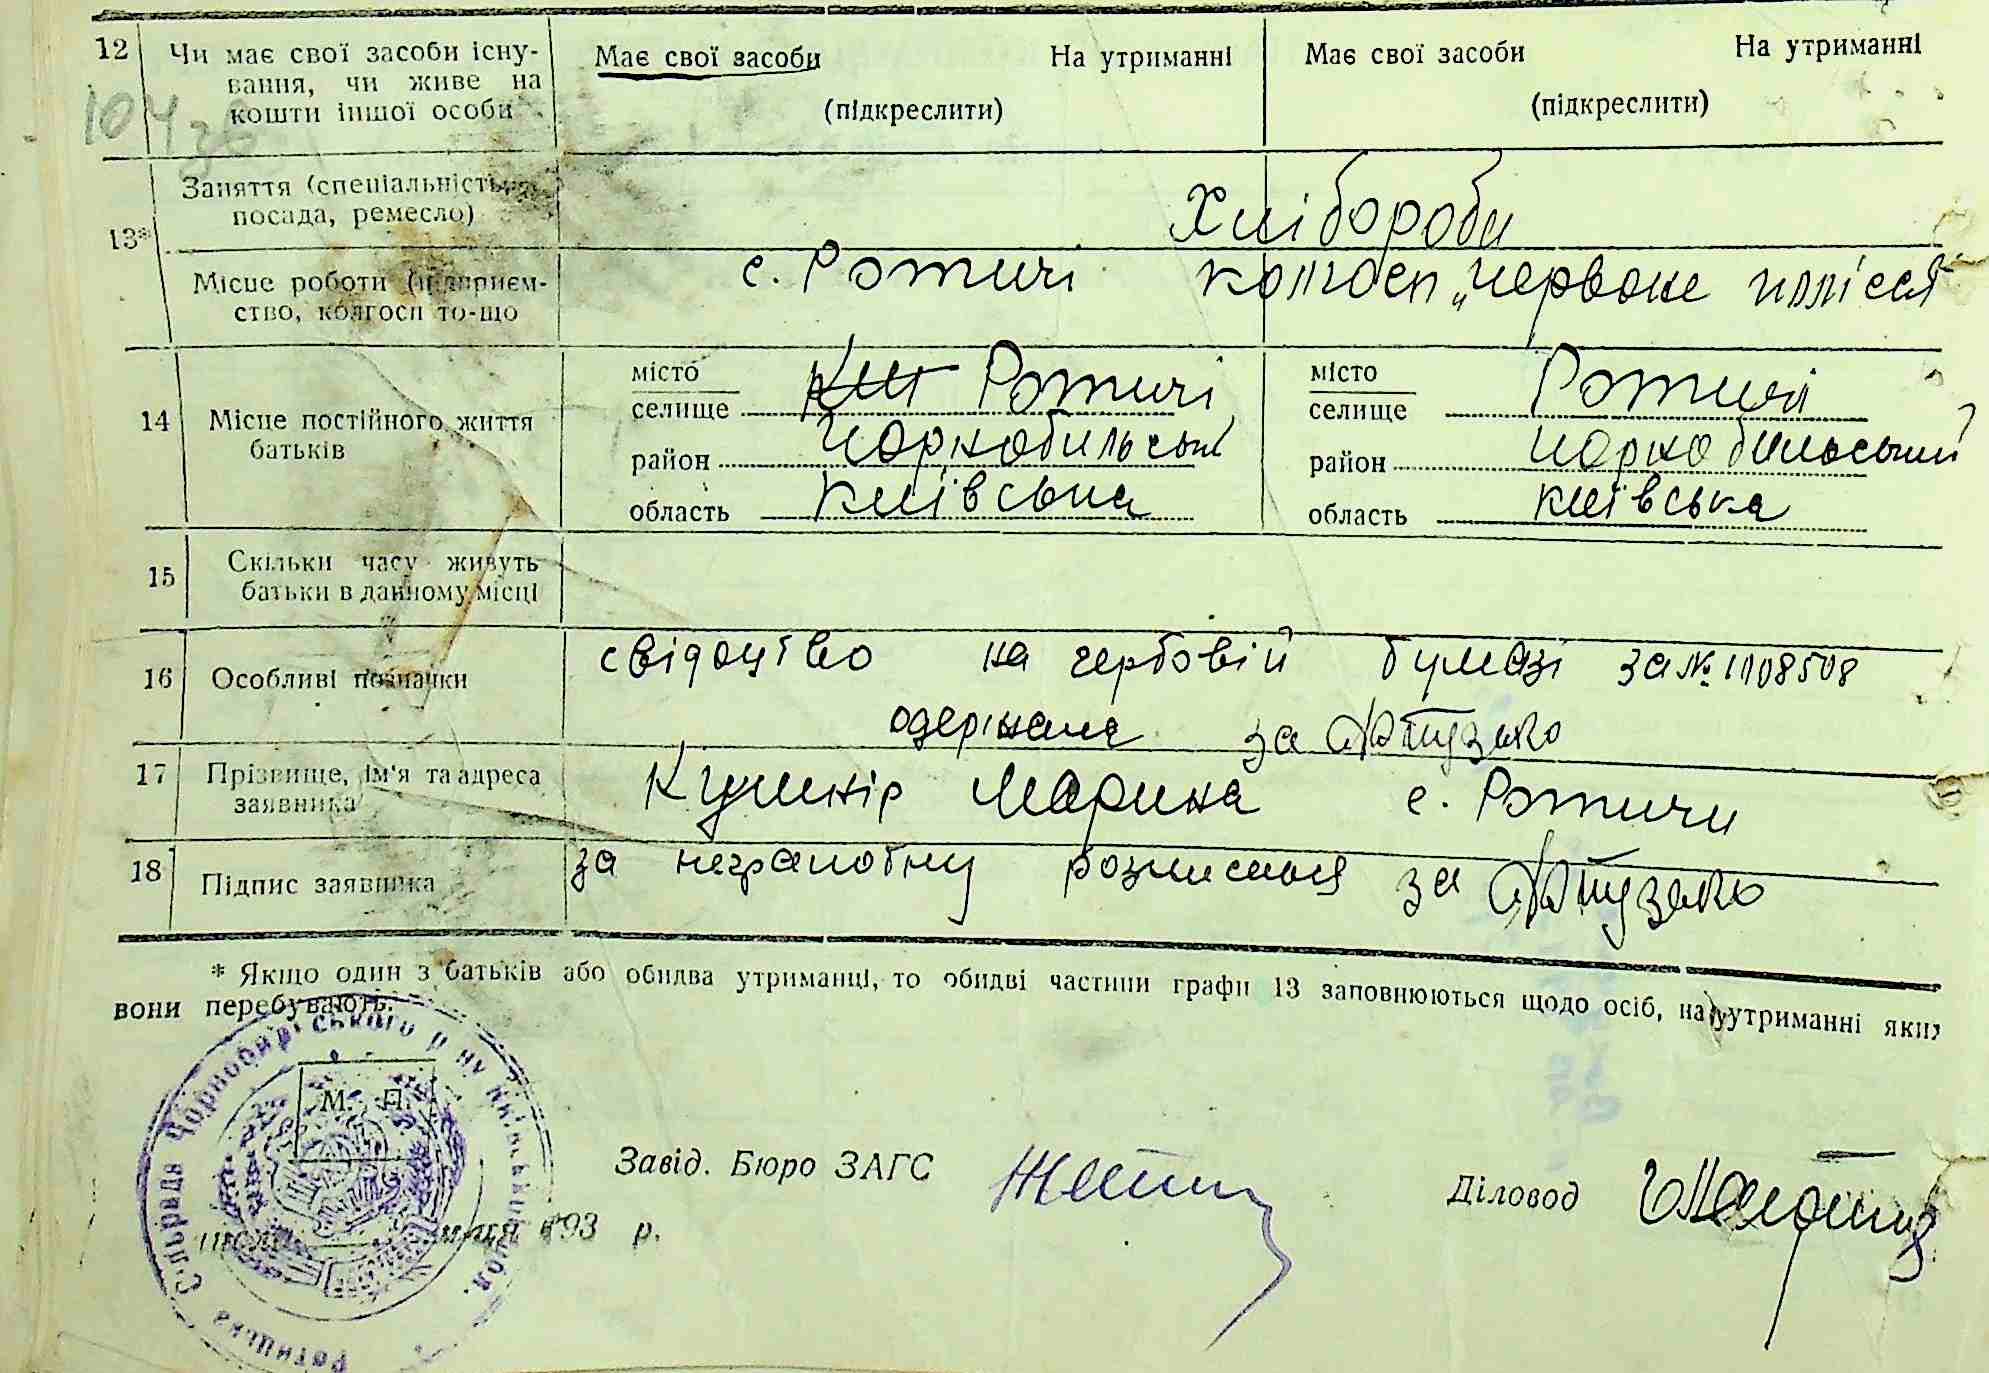 12 Чи має свої засоби існу-
вання, чи живе на
кошти іншої особи
Має свої засоби На утриманні
(підкреслити)
Має свої засоби На утриманні
(підкреслити)
104 зв
13*
Заняття (спеціальність,
посада, ремесло)
Хлібороби
Місце роботи (підприєм-
ство, колгосп то-що
с. Ротичі колгосп „червоне полісся"
14 Місце постійного життя
батьків
місто
селище Ротичі
район Чорнобильський
область Київська
місто
селище Ротичі
район Чорнобильський
область Київська
15 Скільки часу живуть
батьки в данному місці
16 Особливі позначки
свідоцтво на гербовій бумазі за № 1108508
одержала за
17 Прізвище, ім'я та адреса
заявника
Кушнір Марина с. Ротичи
18 Підпис заявника
за неграмотну розписався за
* Якщо один з батьків або обидва утриманці, то обидві частини графи 13 заповнюються щодо осіб, на утриманні яких
вони перебувають.
М. П.
Завід. Бюро ЗАГС
Діловод
193 р.